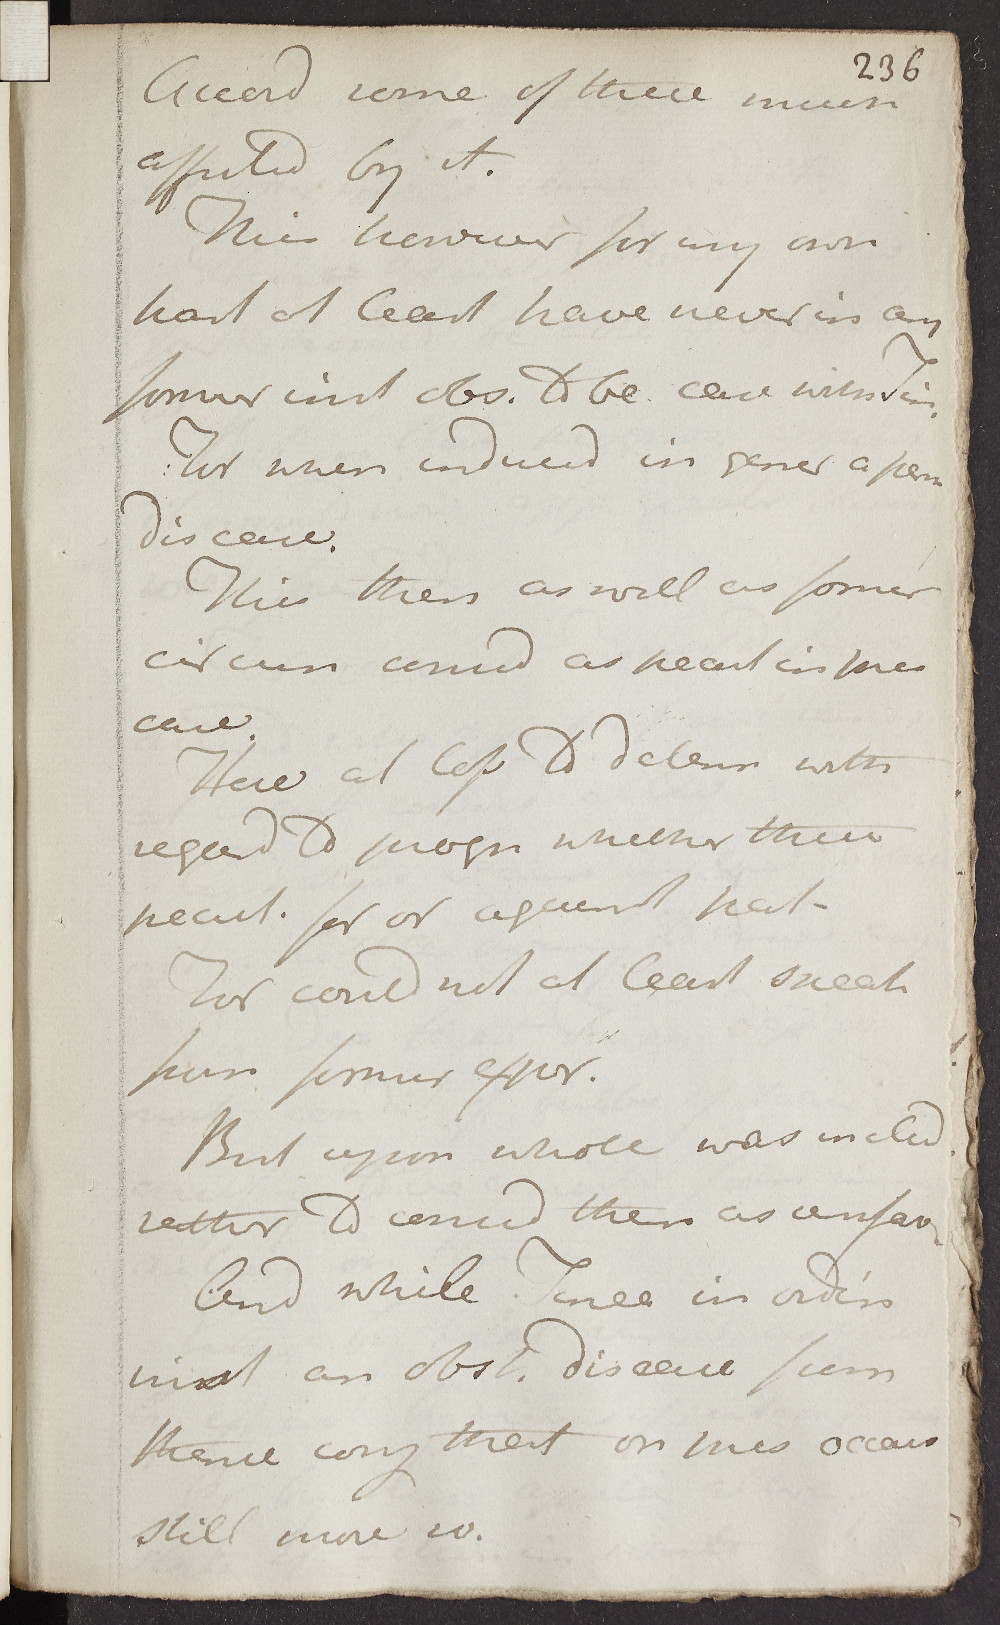 236
Accord some of these much
affected by it.
This however for my own
part at least have never in any
former inst obs. to be case with Tin.
For when induced in gener a perm
disease.
This then as well as former
circum consid as peculi in pres
case.
Here at loss to determ with
regard to progn whether these
pecul. for or against pat-
For could not at least speak
from former exper.
But upon whole was inclid
rather to consid them as unfav
And while Tinea in ordin
inst an obst. disease from
thence conj that on pres occas
still more so.